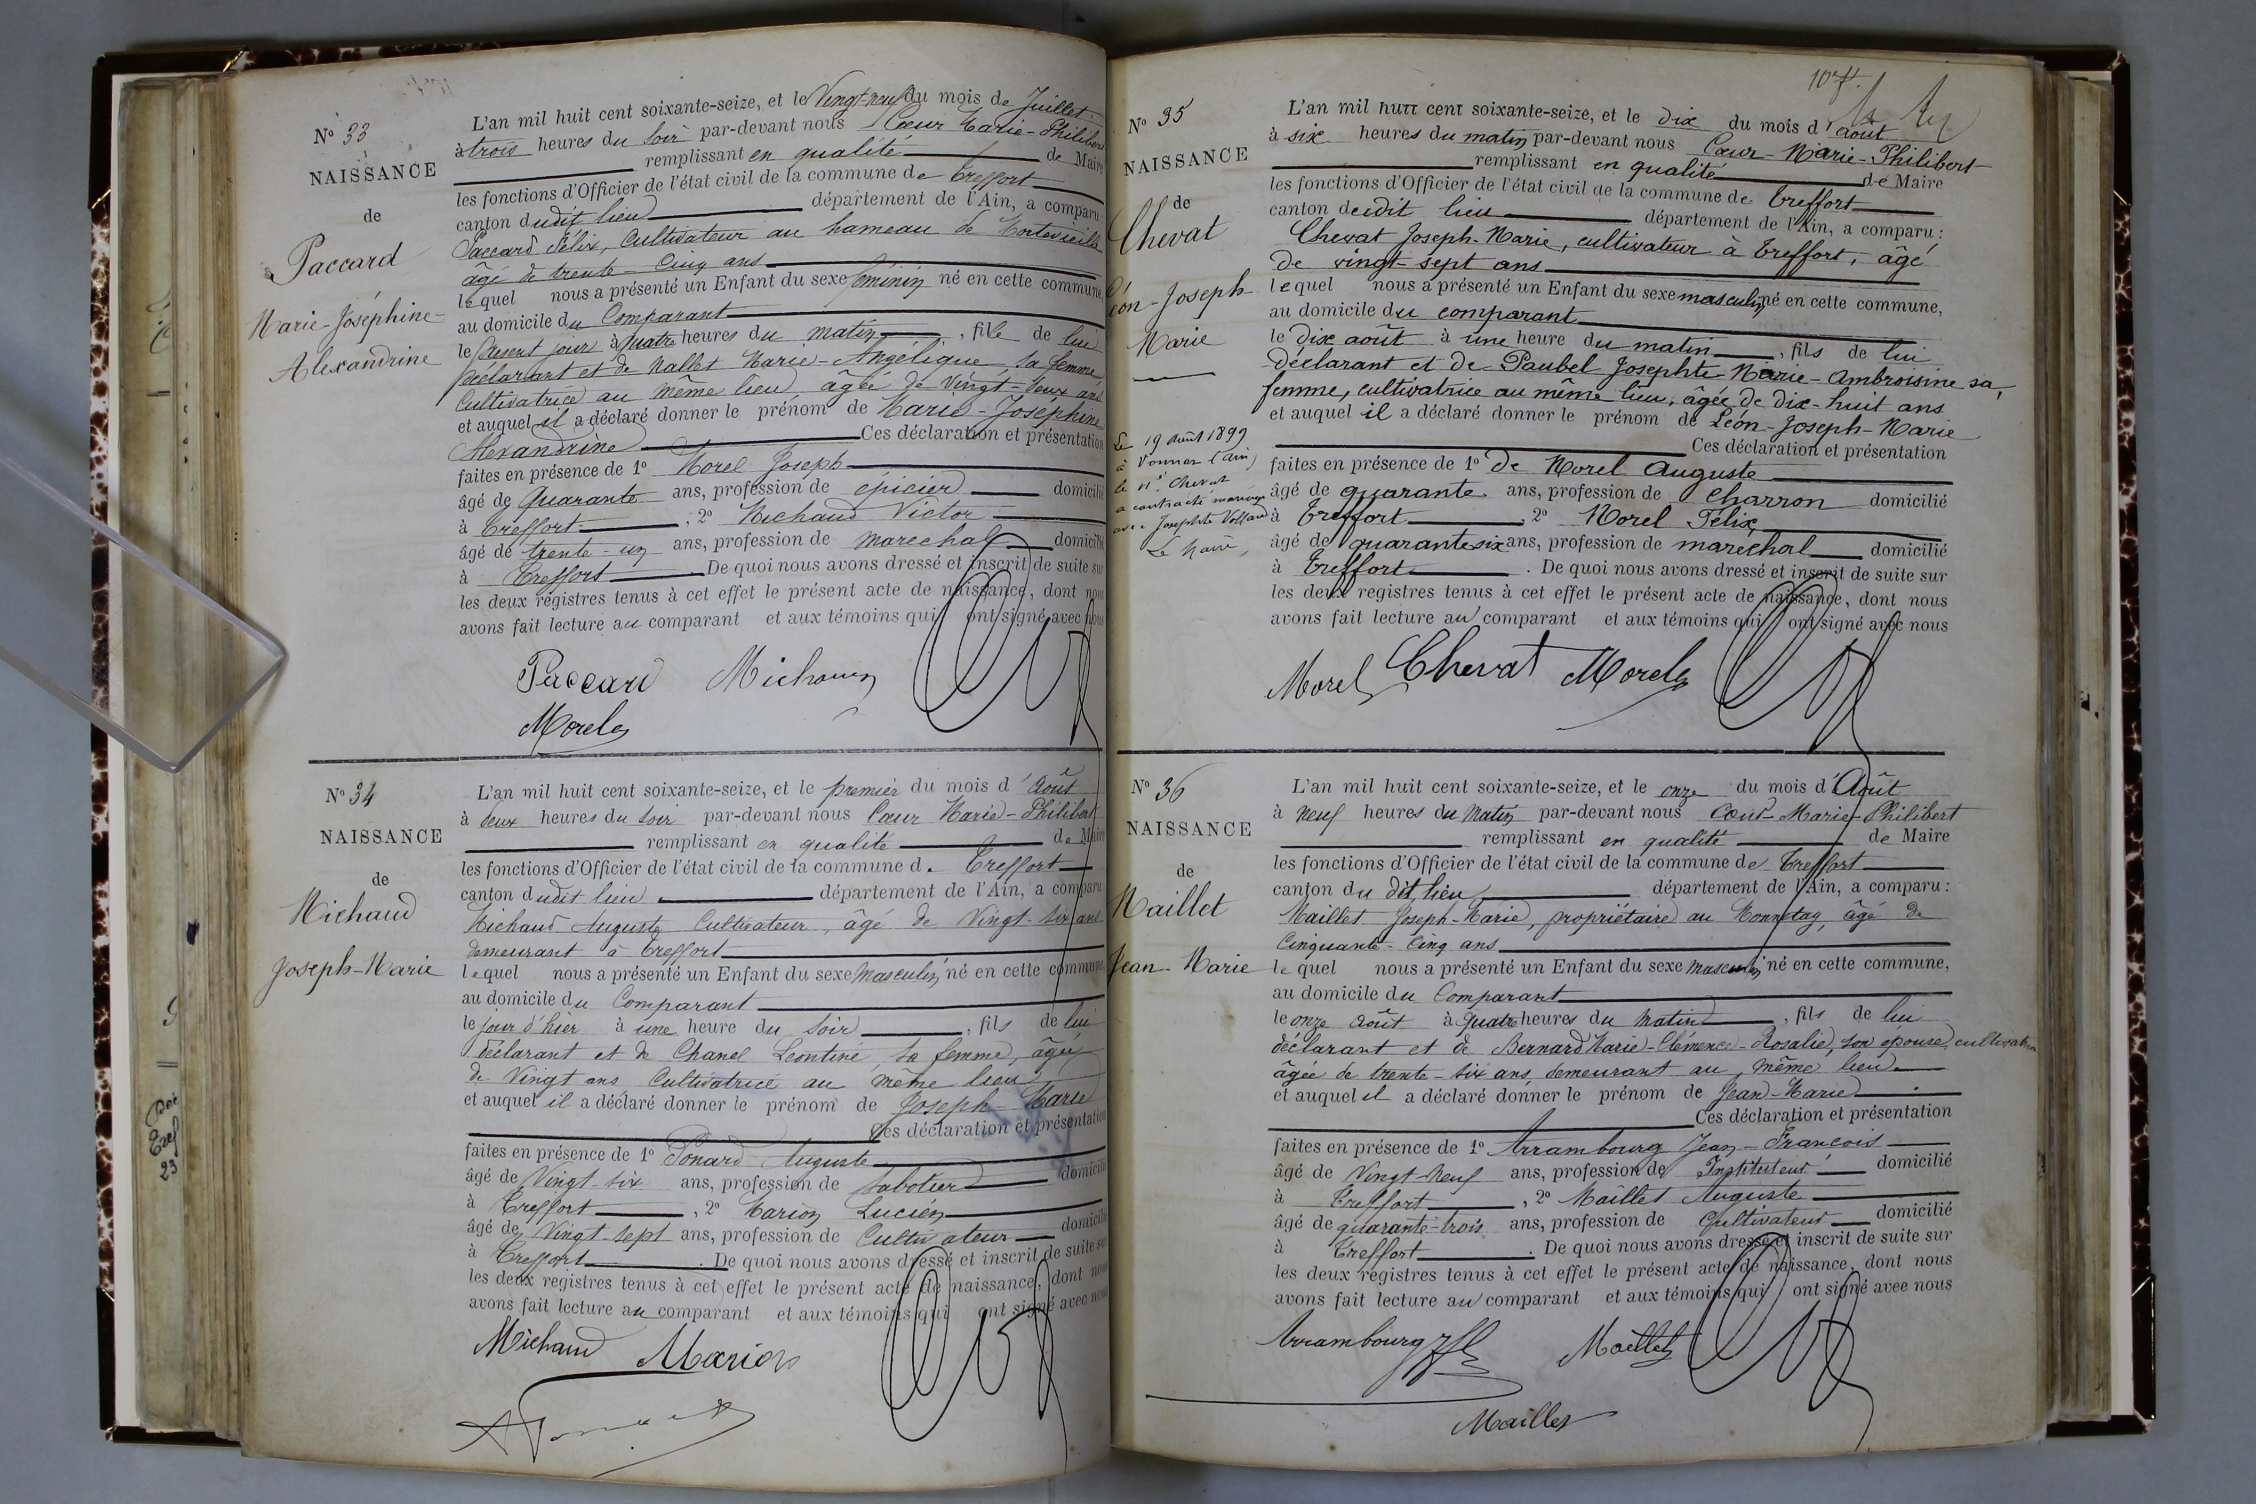 N° 33
NAISSANCE
de
Paccard
Marie-Joséphine-
Alexandrine
L'an mil huit cent soixante-seize, et le Vingt-neuf du mois de Juillet
à trois heures du soir par-devant nous Cœur Marie-Philibert
remplissant en qualité de Maire
les fonctions d'Officier de l'état civil de la commune de Treffort
canton dudit lieu département de l'Ain, a comparu
Paccard Félix, Cultivateur au hameau de
âgé de trente-cinq ans
lequel nous a présenté un Enfant du sexe féminin né en cette commune,
au domicile du Comparant
le présent jour à quatre heures du matin, fille de lui
déclarant et de Nallet Marie-Angélique, sa femme,
Cultivatrice au même lieu âgée de Vingt-deux ans
et auquel il a déclaré donner le prénom de Marie-Joséphine
Alexandrine Ces déclaration et présentation
faites en présence de 1° Morel Joseph
âgé de Quarante ans, profession de épicier domicilié
à Treffort, 2° Michaud Victor
âgé de trente-un ans, profession de maréchal domicilié
à Treffort De quoi nous avons dressé et inscrit de suite sur
les deux registres tenus à cet effet le présent acte de naissance, dont nous
avons fait lecture au comparant et aux témoins qui ont signé avec nous
Paccard Michaud
Morel
N° 34
NAISSANCE
de
Michaud
Joseph-Marie
L'an mil huit cent soixante-seize, et le premier du mois d'Août
à deux heures du soir par-devant nous Cœur Marie-Philibert
remplissant en qualité de Maire
les fonctions d'Officier de l'état civil de la commune d. Treffort
canton dudit lieu département de l'Ain, a comparu
Michaud Auguste Cultivateur, âgé de Vingt-six ans
demeurant à Treffort
lequel nous a présenté un Enfant du sexe Masculin né en cette commune,
au domicile du Comparant
le jour d'hier à une heure du soir, fils de lui
déclarant et de Chanel Léontine, sa femme, âgée
de Vingt ans Cultivatrice au même lieu
et auquel il a déclaré donner le prénom de Joseph Marie
Ces déclaration et présentation
faites en présence de 1° Ponard Auguste
âgé de Vingt-six ans, profession de sabotier domicilié
à Treffort, 2° Marion Lucien
âgé de Vingt-sept ans, profession de Cultivateur domicilié
à Treffort. De quoi nous avons dressé et inscrit de suite sur
les deux registres tenus à cet effet le présent acte de naissance, dont nous
avons fait lecture au comparant et aux témoins qui ont signé avec nous
Michaud Marion
N° 35
NAISSANCE
de
Chevat
Léon-Joseph-
Marie
Le 19 Août 1899
à Vonnas (Ain)
le Sr Chevat
a contracté mariage
avec Josephte Volland
Le Maire,
L'an mil huit cent soixante-seize, et le dix du mois d'août
à six heures du matin par-devant nous Cœur-Marie-Philibert
remplissant en qualité de Maire
les fonctions d'Officier de l'état civil de la commune de Treffort
canton dudit lieu département de l'Ain, a comparu :
Chevat Joseph-Marie, cultivateur à Treffort, âgé
de vingt-sept ans
lequel nous a présenté un Enfant du sexe masculin né en cette commune,
au domicile du comparant
le dix août à une heure du matin, fils de lui
déclarant et de Paubel Josephte-Marie-Ambroisine sa
femme, cultivatrice au même lieu, âgée de dix-huit ans
et auquel il a déclaré donner le prénom de Léon-Joseph-Marie
Ces déclaration et présentation
faites en présence de 1° de Morel Auguste
âgé de quarante ans, profession de charron domicilié
à Treffort, 2° Morel Félix
âgé de quarante six ans, profession de maréchal domicilié
à Treffort. De quoi nous avons dressé et inscrit de suite sur
les deux registres tenus à cet effet le présent acte de naissance, dont nous
avons fait lecture au comparant et aux témoins qui ont signé avec nous
Morel Chevat Morel
N° 36
NAISSANCE
de
Maillet
Jean-Marie
L'an mil huit cent soixante-seize, et le onze du mois d'Août
à neuf heures du Matin par-devant nous Cœur-Marie-Philibert
remplissant en qualité de Maire
les fonctions d'Officier de l'état civil de la commune de Treffort
canton du dit lieu département de l'Ain, a comparu :
Maillet Joseph-Marie, propriétaire au Monnetay, âgé de
Cinquante-Cinq ans
lequel nous a présenté un Enfant du sexe masculin né en cette commune,
au domicile du Comparant
le onze août à quatre heures du matin, fils de lui
déclarant et de Bernard Marie-Clémence-Rosalie, son épouse, cultivatrice
âgée de trente-six ans, demeurant au même lieu
et auquel il a déclaré donner le prénom de Jean-Marie
Ces déclaration et présentation
faites en présence de 1° Arrambourg Jean-François
âgé de Vingt-neuf ans, profession de Instituteur domicilié
à Treffort, 2° Maillet Auguste
âgé de quarante-trois ans, profession de Cultivateur domicilié
à Treffort. De quoi nous avons dressé et inscrit de suite sur
les deux registres tenus à cet effet le présent acte de naissance, dont nous
avons fait lecture au comparant et aux témoins qui ont signé avec nous
Arrambourg Maillet
Maillet